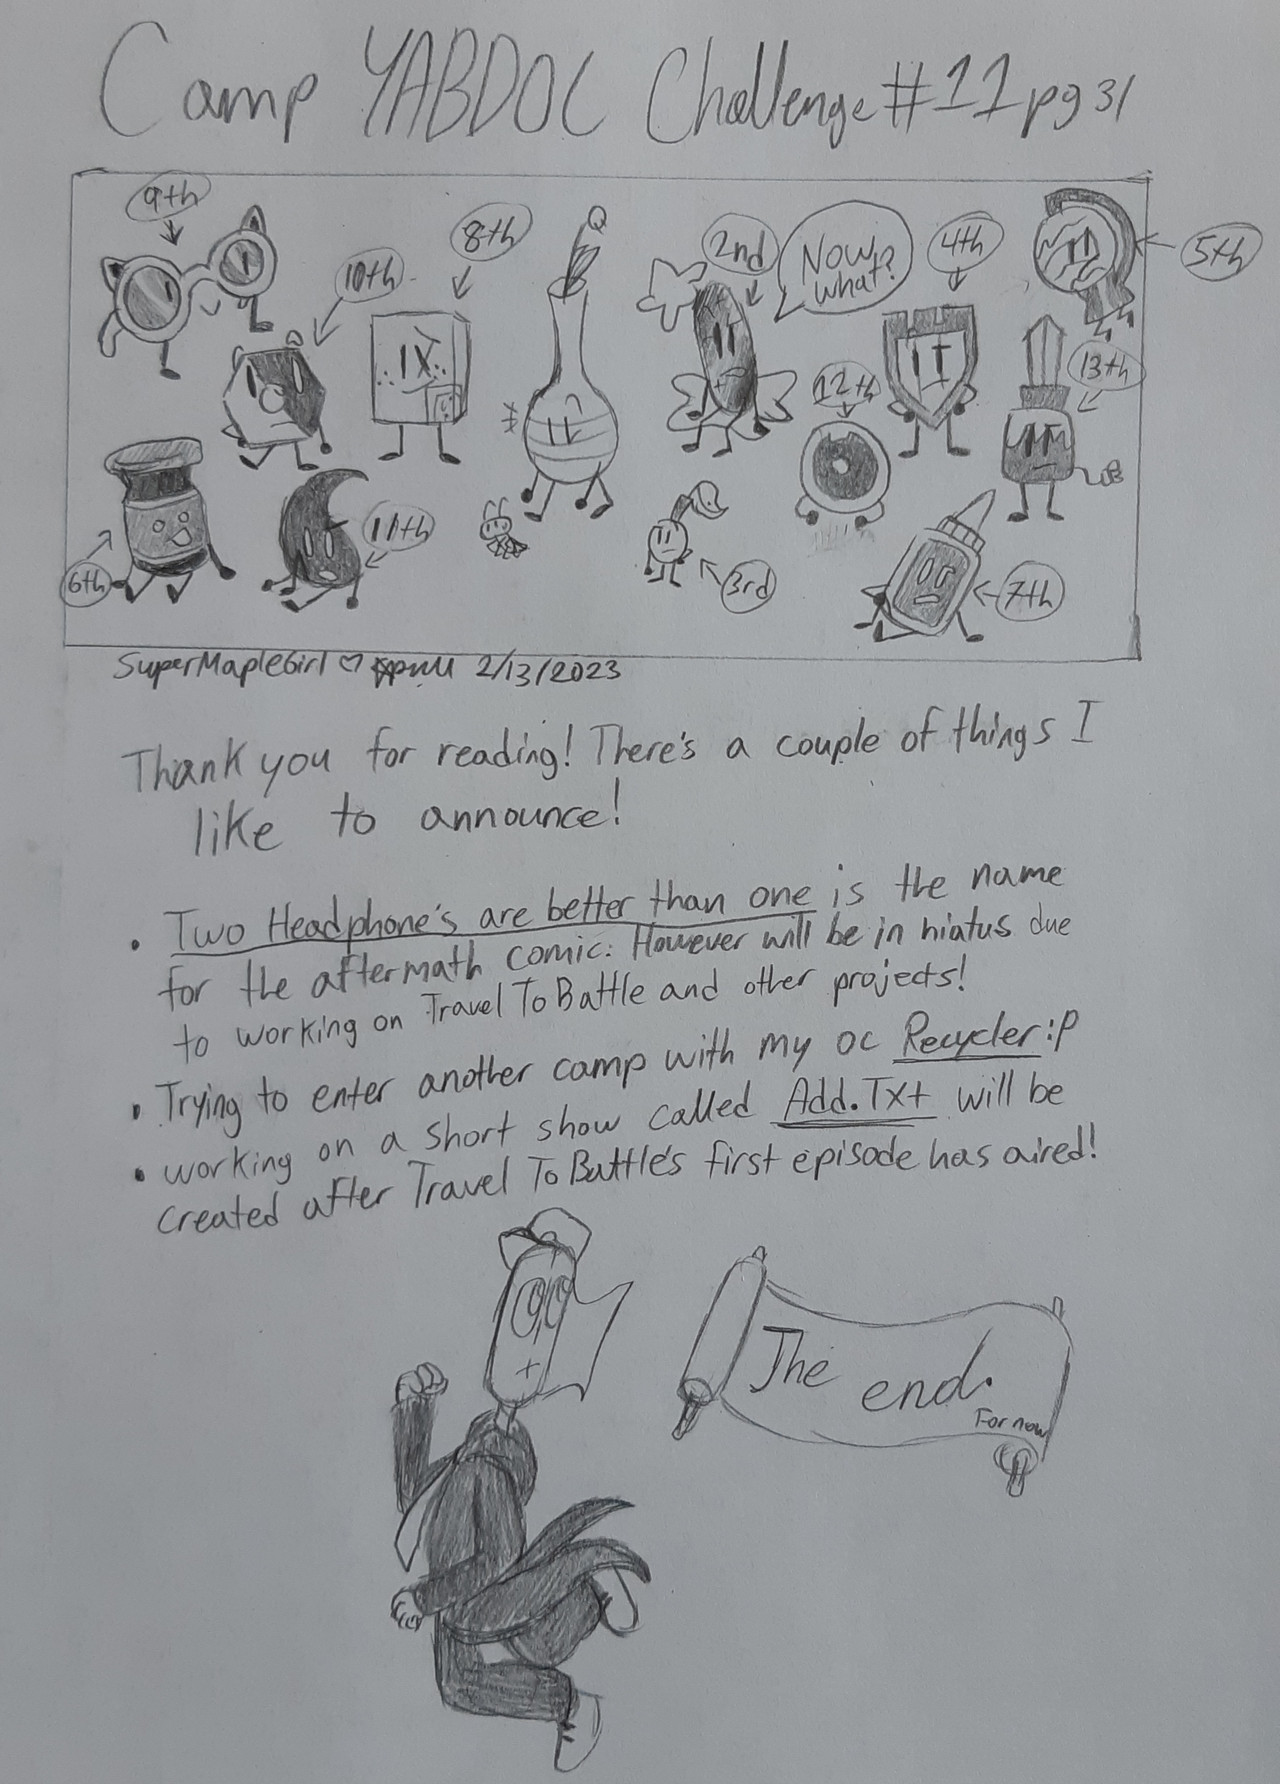 Camp YABDOC Challenge #11 pg 31
9th
10th
8th
2nd
Now what?
4th
5th
12th
13th
6th
11th
3rd
7th
SuperMapleGirl ♡ 2/13/2023
Thank you for reading! There's a couple of things I
like to announce!
• Two Headphone's are better than one is the name
for the aftermath comic. However will be in hiatus due
to working on Travel To Battle and other projects!
• Trying to enter another camp with my oc Recycler :P
• working on a short show called Add.Txt will be
created after Travel To Battle's first episode has aired!
The end.
For now